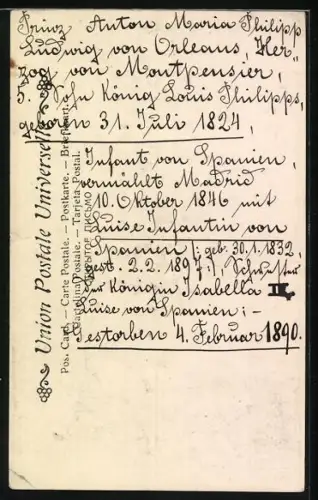 Prinz Anton Maria Philipp
Ludwig von Orleans, Her-
zog von Montpensier,
5. Sohn König Louis Philipps,
geboren 31. Juli 1824,
Infant von Spanien,
vermählt Madrid
10. Oktober 1846 mit
Luise Infantin von
Spanien /: geb. 30.1.1832,
gest. 2.2.1897 :/, Schwester
der Königin Isabella II.
Luise von Spanien; –
Gestorben 4. Februar 1890.
Union Postale Universelle
Post Card. – Carte Postale. – Postkarte. – Briefkaart.
Cartolina Postale. – Tarjeta Postal.
ОТКРЫТОЕ ПИСЬМО